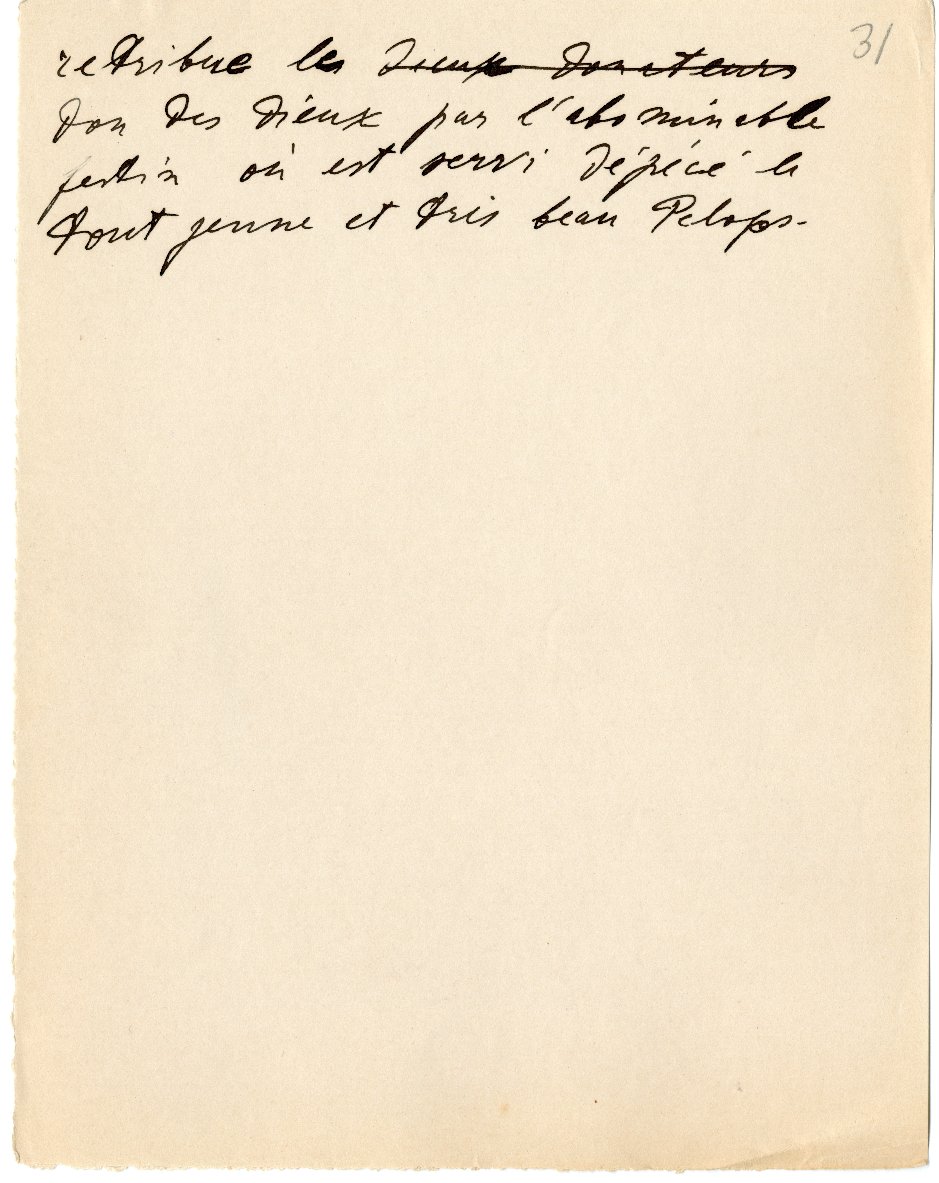 31
retribue les dieux donateurs
don des dieux par l'abominable
festin où est servi dépécé le
tout jeune et très beau Pelops.